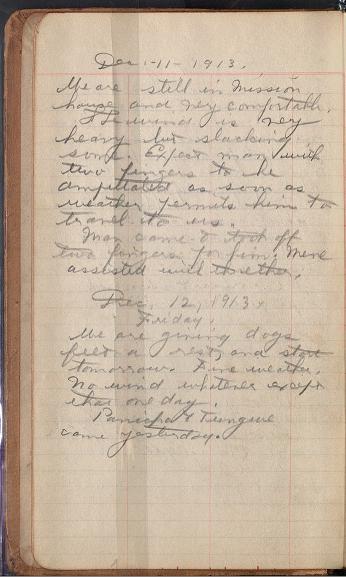 Dec. 11 - 1913.
We are still in Mission
house and very comfortable.
The wind is very
heavy but slacking
some. Expect man with
two fingers to be
amputated as soon as
weather permits him to
travel to us.
Man came & took off
two fingers for him. Mene
assisted with ether.
Dec. 12, 1913.
Friday.
We are giving dogs
feed a rest, and start
tomorrow. Fine weather.
No wind whatever except
that one day.
&
came yesterday.